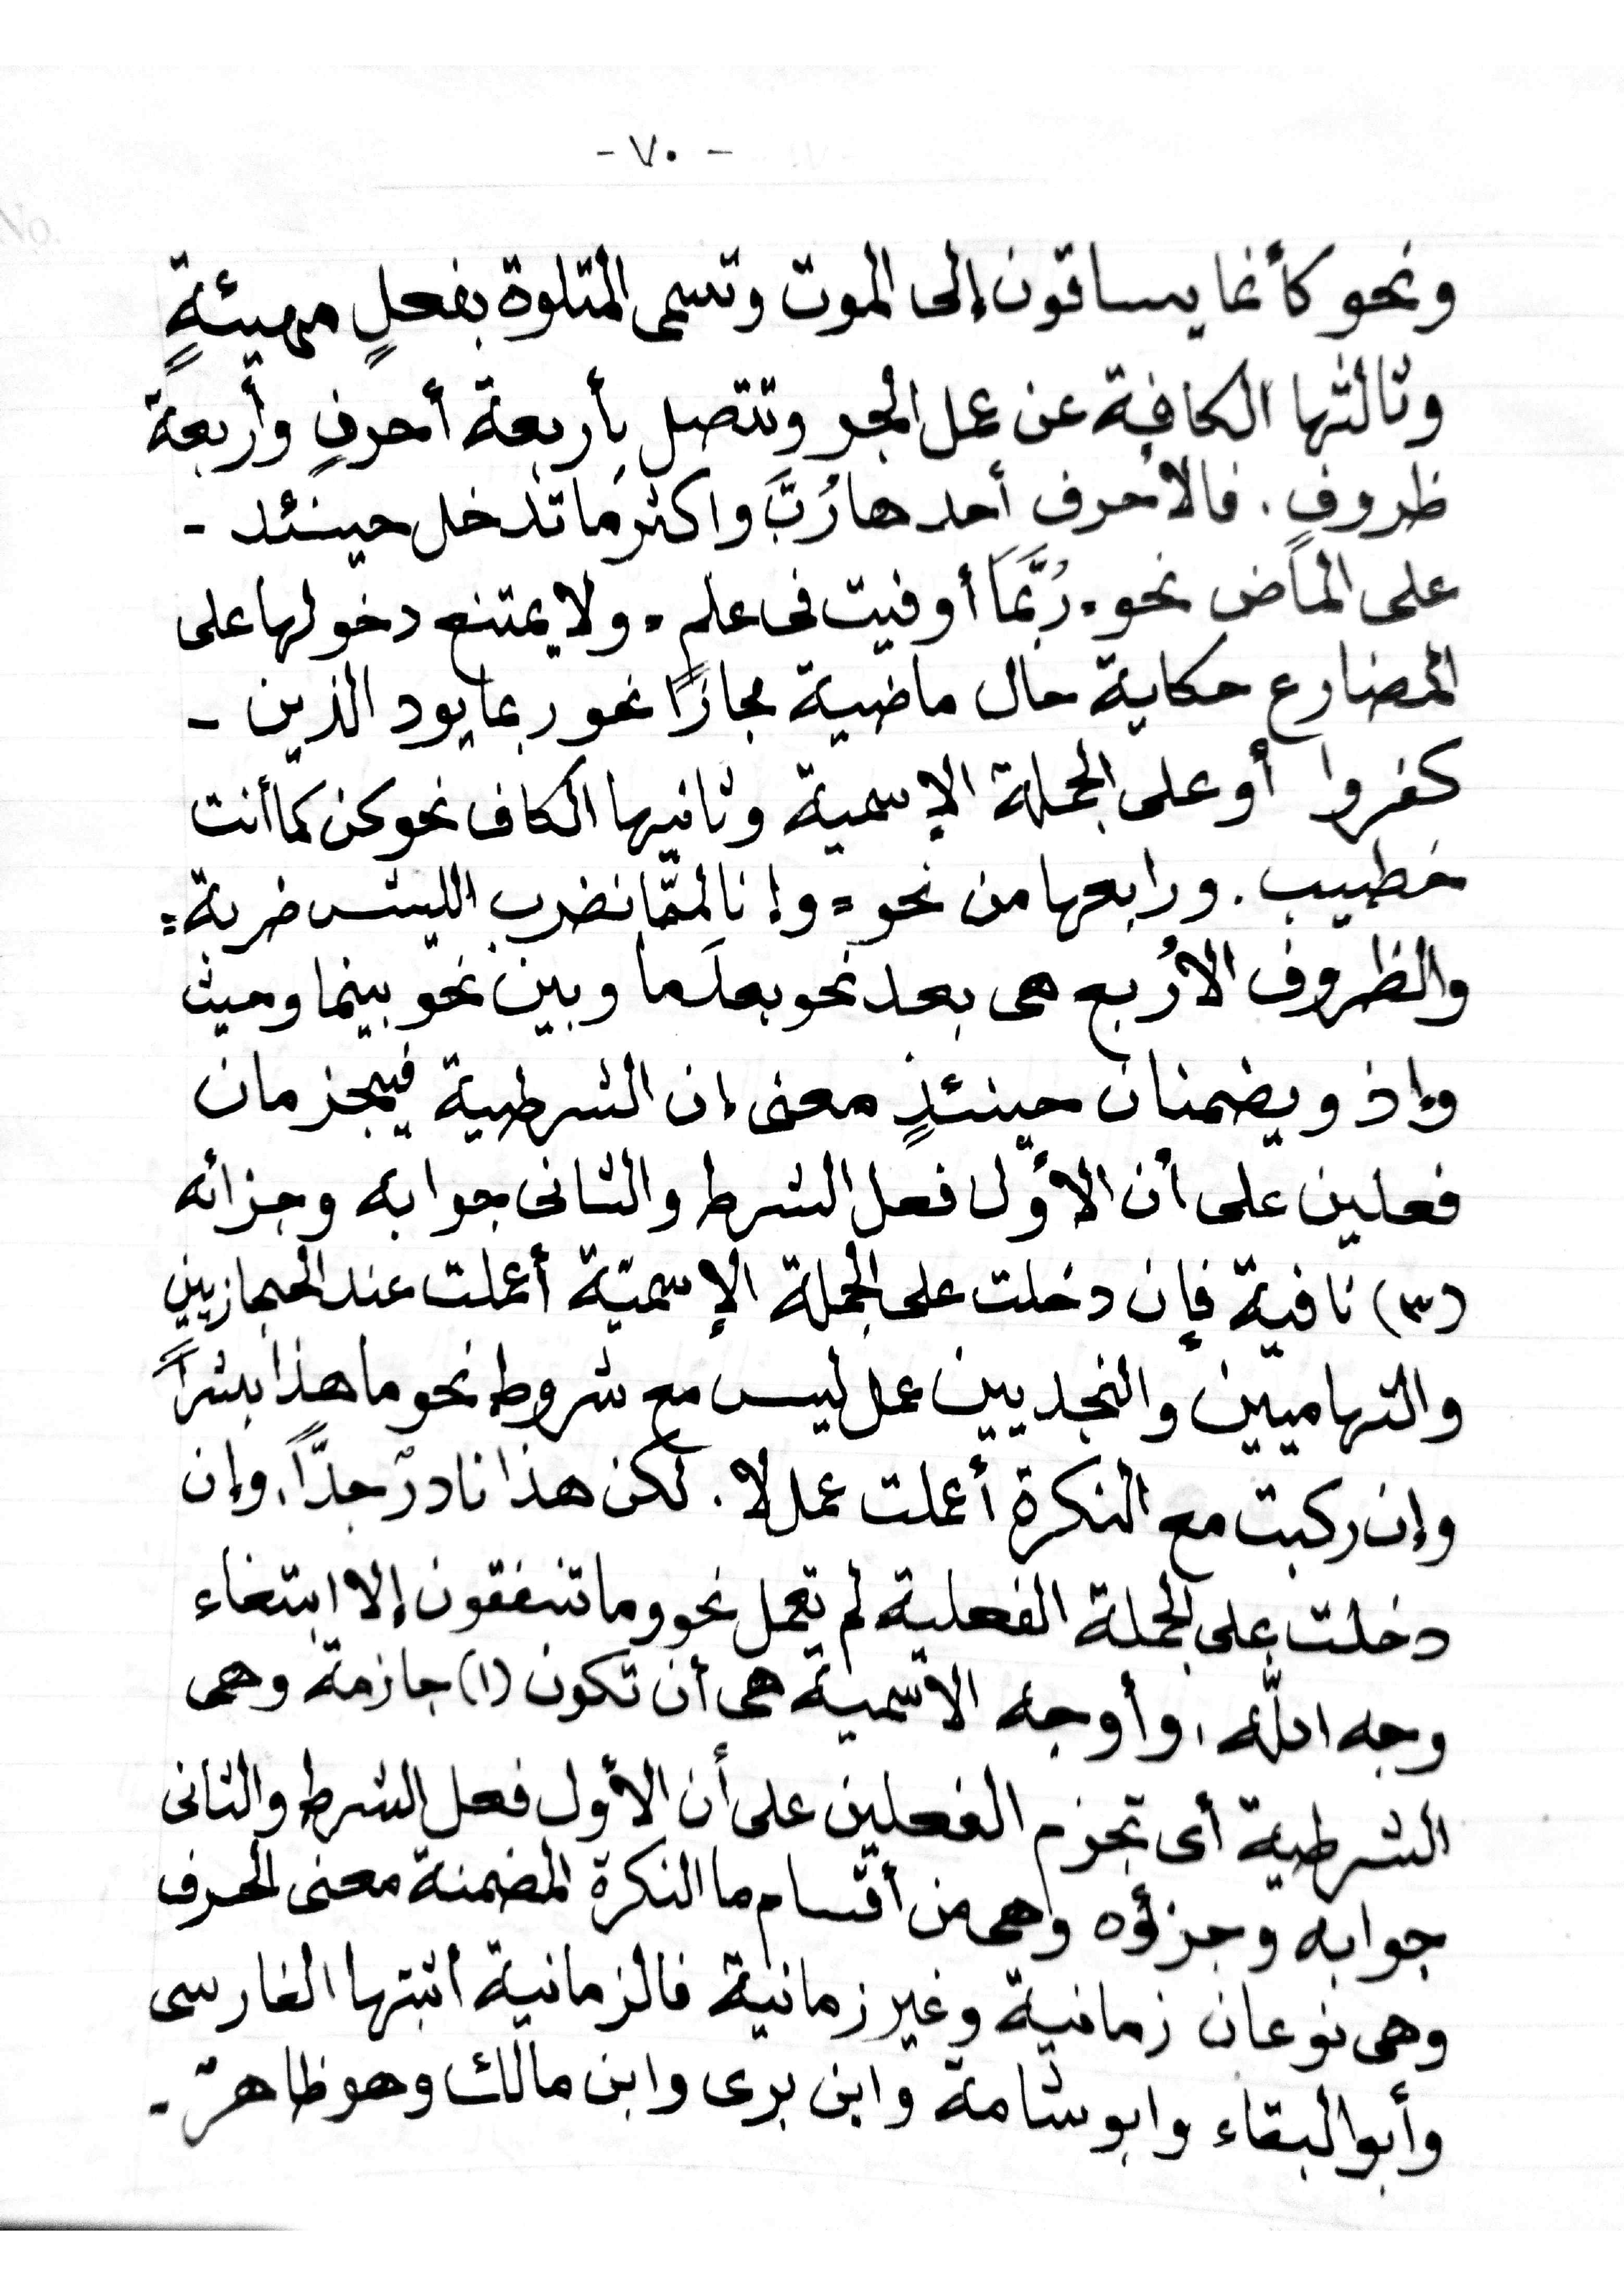 - ٧٠ -
ونحو كأنما يساقون إلى الموت وتسمى المتلوة بفعلٍ مهيئةٍ
وثالثها الكافة عن عمل الجر وتتصل بأربعة أحرفٍ وأربعة
ظروفٍ . فالأحرف أحدها رُبَّ واكثر ما تدخل حينئد -
على الماض نحو ٠ رُبَّمَا أوفيت فى علمٍ ٠ ولا يمتنع دخولها على
المضارع حكاية حال ماضية مجازًا نحو ربما يود الذين -
كفروا أو على الجملة الإسمية وثانيها الكاف نحو كن كما أنت
خطيب . ورابعها من نحو = وإنا لممّا نضرب الليث ضربة =
والظروف الأربع هى بعد نحو بعدَما وبين نحو بينما وحيث
وإذ ويضمنان حينئذٍ معنى إن الشرطية فيجزمان
فعلين على أن الأول فعل الشرط والثانى جوابه وجزائه
(٣) نافية فإن دخلت على الجملة الإسميّة أعملت عند الحجازيين
والتهاميين والنجديين عمل ليس مع شروط نحو ما هذا بشراً
وإن ركبت مع النكرة أعملت عمل لا . لكن هذا نادرٌ جدّاً، وإن
دخلت على الجملة الفعلية لم تعمل نحو وما تنفقون إلا ابتغاء
وجه اللّه ، وأوجه الاسمية هى أن تكون (١) جازمة وهى
الشرطية أى تجزم الفعلين على أن الأول فعل الشرط والثانى
جوابه وجزؤه وهى من أقسام ما النكرة المضمنة معنى الحرف
وهى نوعان زمانية وغير زمانية فالزمانية اثبتها الفارسى
وأبو البقاء وابو شامة وابن برى وابن مالك وهو ظاهرٌ -